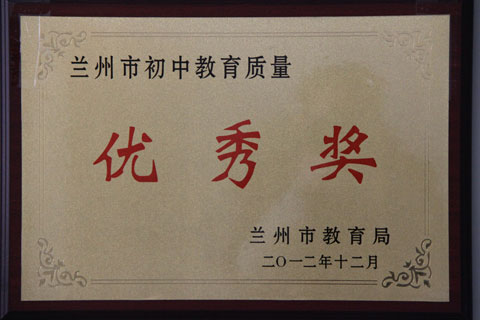 兰州市初中教育质量
优秀奖
兰州市教育局
二〇一二年十二月